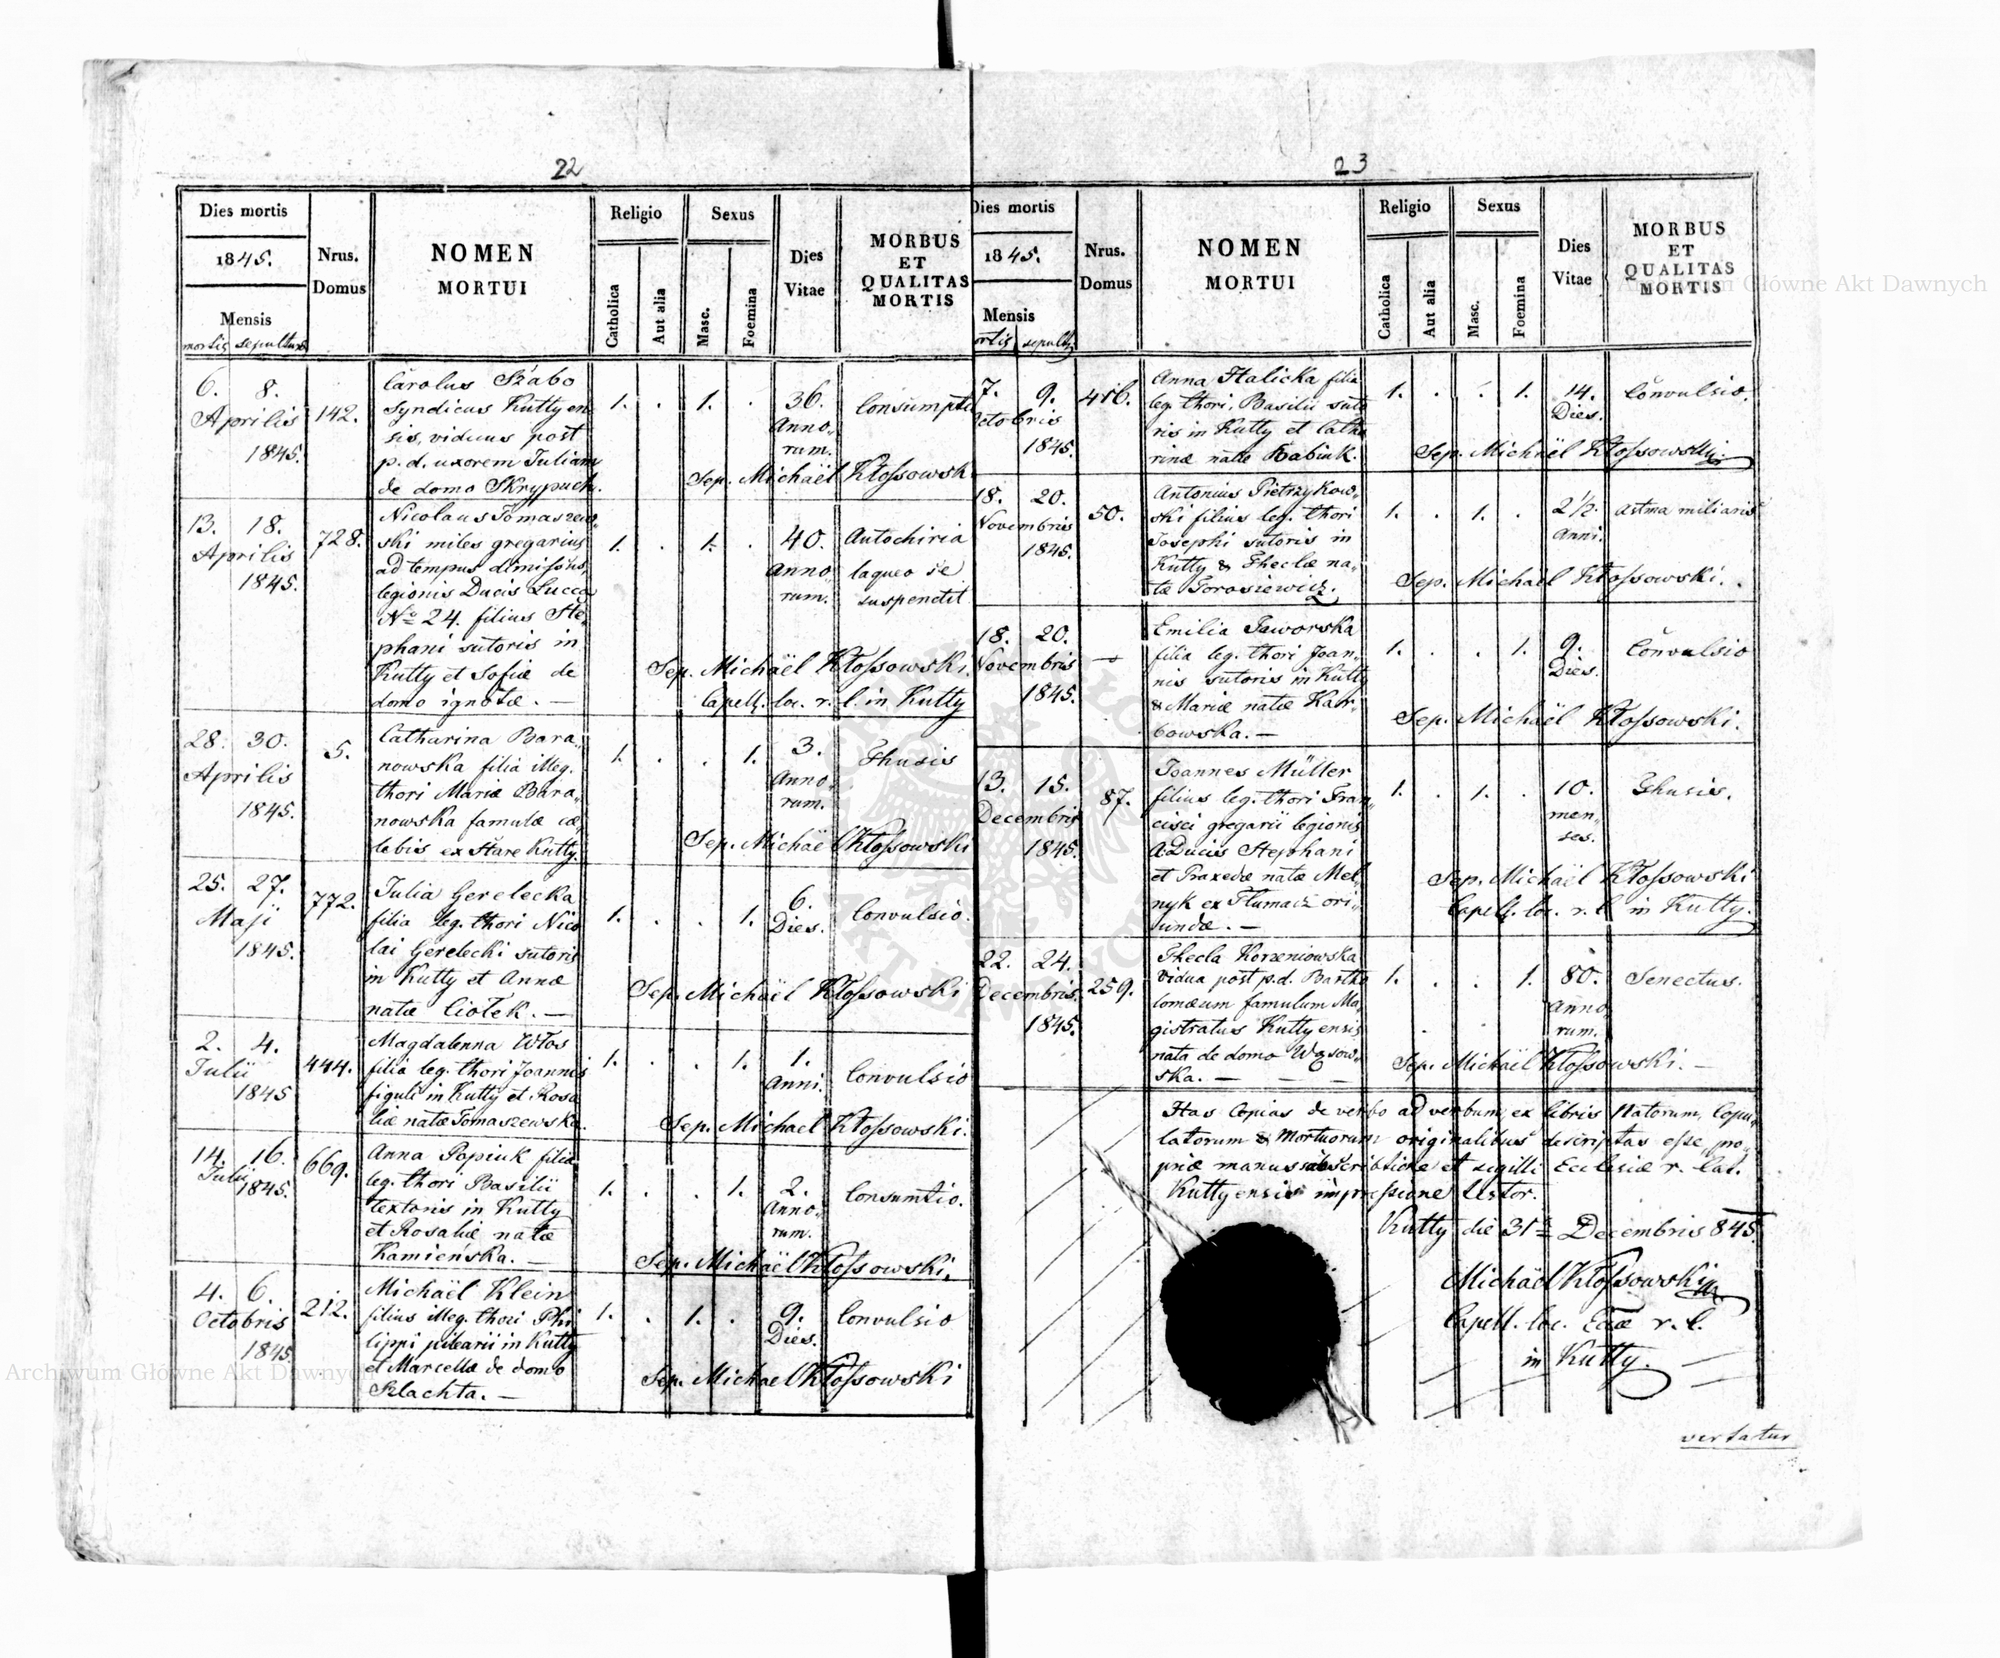 22
Dies mortis
1845.
Mensis
mortis sepulturae
Nrus.
Domus
NOMEN
MORTUI
Religio
Catholica
Aut alia
Sexus
Masc.
Foemina
Dies
Vitae
MORBUS
ET
QUALITAS
MORTIS
6. 8.
Aprilis
1845.
142.
Carolus Szabo
Syndicus Kuttyen
sis, viduus post
p. d. uxorem Juliam
de domo Skrypuch.
1. . 1. .
36.
Anno„
rum.
Consumptio
Sep. Michaël Kłossowski
13. 18.
Aprilis
1845.
728.
Nicolaus Tomaszew„
ski miles gregarius
ad tempus dimissus,
legionis Ducis Lucca
No 24. filius Ste„
phani sutoris in
Kutty et Sofiæ de
domo ignotæ. —
1. . 1. .
40.
Anno„
rum.
Autochiria
laqueo se
suspendit
Sep. Michaël Kłossowski.
Capell. loc. r. l. in Kutty
28. 30.
Aprilis
1845.
5.
Catharina Bara„
nowska filia illeg.
thori Mariæ Bara„
nowska famulæ cæ„
lebis ex Stare Kutty.
1. . . 1.
3.
Anno„
rum.
Thusis
Sep. Michaël Kłossowski
25. 27.
Maji
1845.
772.
Julia Gerelecka
filia leg. thori Nico
lai Gerelecki sutoris
in Kutty et Annæ
natæ Ciołek. —
1. . . 1.
6.
Dies.
Convulsio.
Sep. Michaël Kłossowski
2. 4.
Julii
1845
444.
Magdalenna Włos
filia leg. thori Joannis
figuli in Kutty et Rosa
liæ natæ Tomaszewska.
1. . . 1.
1.
Anni.
Convulsio
Sep. Michael Kłossowski.
14. 16.
Julii
1845.
669.
Anna Popiuk filia
leg. thori Basilii
textoris in Kutty
et Rosaliæ natæ
Kamieńska. —
1. . . 1.
2.
Anno„
rum.
Consumtio.
Sep. Michaël Kłossowski.
4. 6.
Octobris
1845
212.
Michaël Klein
filius illeg. thori Phi
lippi pilearii in Kutty
et Marcellæ de domo
Szlachta. —
1. . 1. .
9.
Dies.
Convulsio
Sep. Michael Kłossowski
23
Dies mortis
1845.
Mensis
ortis sepult
Nrus.
Domus
NOMEN
MORTUI
Religio
Catholica
Aut alia
Sexus
Masc.
Foemina
Dies
Vitae
MORBUS
ET
QUALITAS
MORTIS
7. 9.
Octobris
1845.
416.
Anna Halicka filia
leg. thori, Basilii suto
ris in Kutty et Catha
rinæ natæ Babiuk.
1. . . 1.
14.
Dies.
Convulsio.
Sep. Michaël Kłossowski.
18. 20.
Novembris
1845.
50.
Antonius Pietrzykow„
ski filius leg. thori
Josephi sutoris in
Kutty & Theclæ na„
tæ Torosiewicz.
1. . 1. .
2½.
Anni.
Astma miliaris
Sep. Michaël Kłossowski.
18. 20.
Novembris
1845.
Emilia Jaworska
filia leg. thori Joan„
nis sutoris in Kutty
& Mariæ natæ Kar„
bowska. —
1. . . 1.
9.
Dies.
Convulsio
Sep. Michaël Kłossowski.
13. 15.
Decembris
1845.
87.
Joannes Müller
filius leg. thori Fran„
cisci gregarii legionis
A. Ducis Stephani
et Praxedæ natæ Mel„
nyk ex Tłumacz ori„
undæ. —
1. . 1. .
10.
men„
ses.
Thusis.
Sep. Michaël Kłossowski
Capell. loc. r. l. in Kutty.
22. 24.
Decembris.
1845.
259.
Thecla Korzeniowska
vidua post p. d. Bartho
lomæum famulum Ma„
gistratus Kuttyensis
nata de domo Wąsow„
ska. — — —
1. . . 1.
80.
Anno„
rum.
Senectus.
Sep. Michaël Kłossowski. —
Has Copias de verbo ad verbum, ex libris Natorum, Copu„
latorum & Mortuorum originalibus descriptas esse, pro„
priæ manus subscribtione et sigilli Ecclesiæ r. lat.
Kuttyensis impressione testor.
Kutty die 31a Decembris 845
Michaël Kłossowski
Capell. loc. Eccæ r. l.
in Kutty.
vertatur
Archiwum Główne Akt Dawnych
Archiwum Główne Akt Dawnych